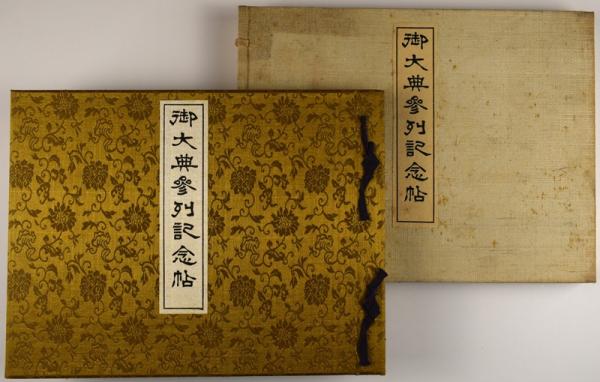 御大典參列記念帖
御大典參列記念帖